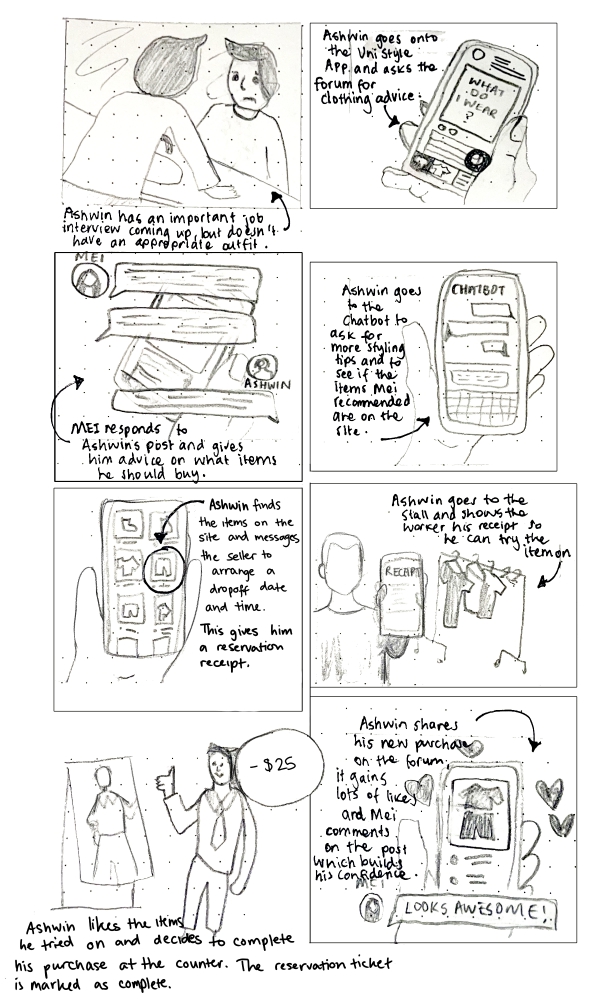 Ashwin has an important job
interview coming up, but doesn't
have an appropriate outfit.
Ashwin goes onto
the UniStyle
App and asks the
forum for
clothing advice.
WHAT
DO
I WEAR
?
MEI
ASHWIN
MEI responds to
Ashwin's post and gives
him advice on what items
he should buy.
Ashwin goes
to the
Chatbot to
ask for
more styling
tips and to
see if the
items Mei
recommended
are on the
site.
CHATBOT
Ashwin finds
the items on the
site and messages
the seller to
arrange a
dropoff date
and time.
This gives him
a reservation
receipt.
Ashwin goes to the
stall and shows the
worker his receipt so
he can try the
item on
Ashwin likes the items
he tried on and decides to complete
his purchase at the counter. The reservation ticket
is marked as complete.
- $25
Ashwin shares
his new purchase
on the forum.
it gains
lots of likes
and Mei
comments
on the post
which builds
his confidence.
MEI
LOOKS AWESOME!